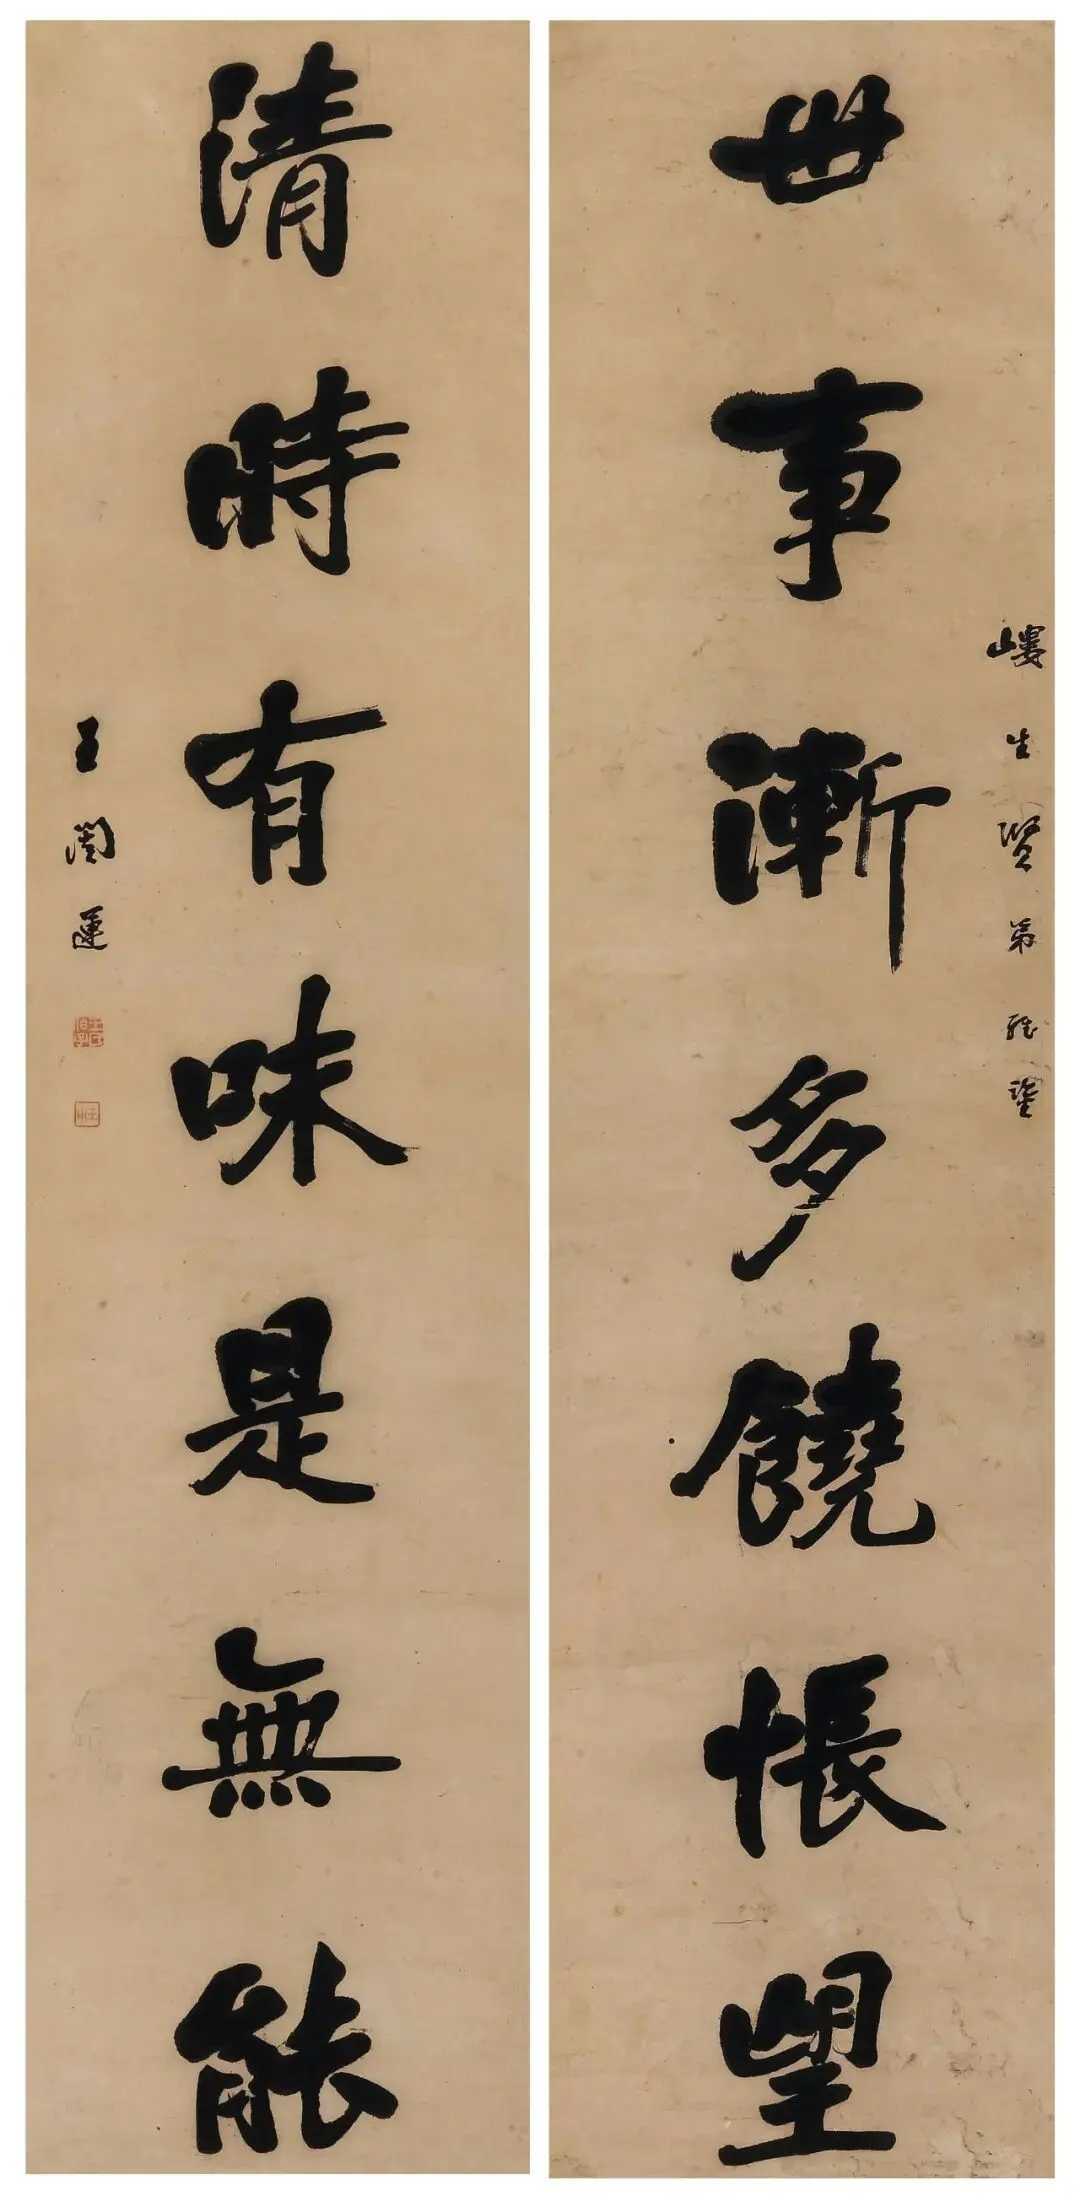 嶁生賢弟雅鑒
世事漸多饒悵望
清時有味是無能
王闓運